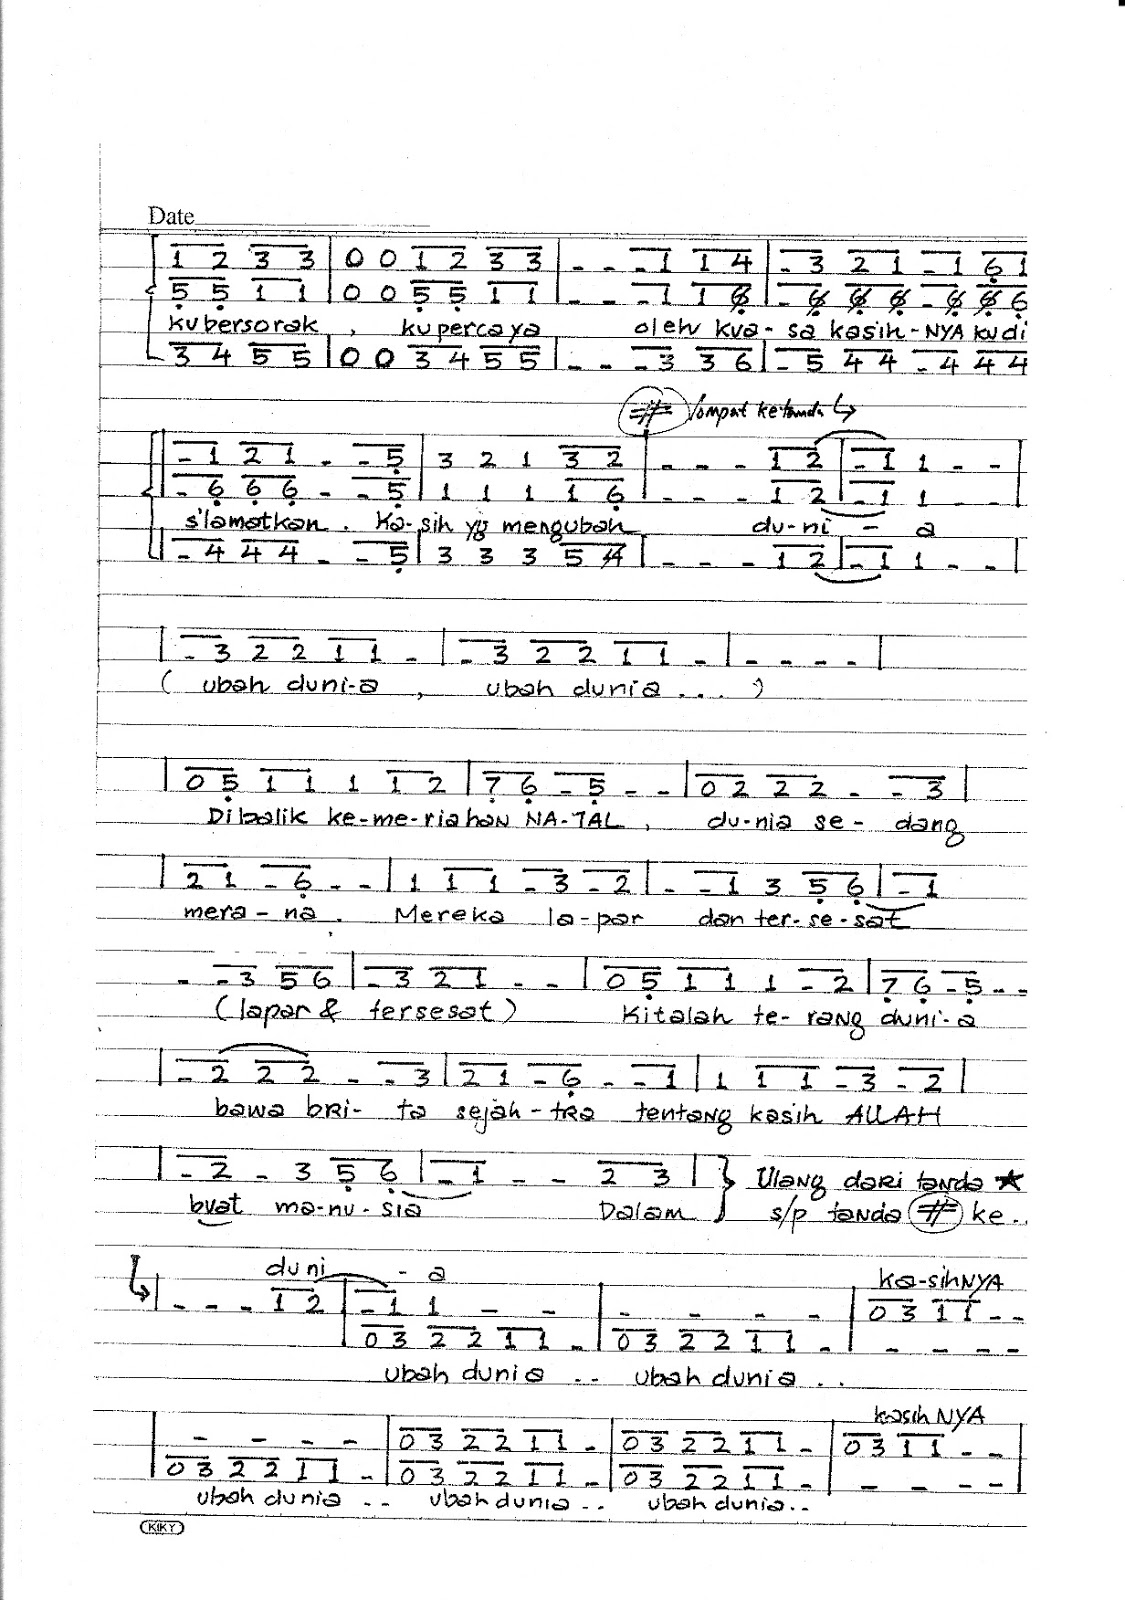 Date
1 2 3 3 | 0 0 1 2 3 3 | - - - 1 1 4 | - 3 2 1 - 1 6 1
5 5 1 1 | 0 0 5 5 1 1 | - - - 1 1 6 | - 6 6 6 - 6 6 6
ku bersorak , ku percaya oleh kua - sa kasih - NYA ku di
3 4 5 5 | 0 0 3 4 5 5 | - - - 3 3 6 | - 5 4 4 - 4 4 4
# lompat ke tanda ↳
- 1 2 1 - - 5 | 3 2 1 3 2 | - - - 1 2 | - 1 1 - - |
- 6 6 6 - - 5 | 1 1 1 1 6 | - - - 1 2 | - 1 1 - -
s'lamatkan . Ka - sih yg mengubah du - ni - a
- 4 4 4 - - 5 | 3 3 3 5 4 | - - - 1 2 | - 1 1 - - |
| - 3 2 2 1 1 - | - 3 2 2 1 1 - | - - - - |
( ubah duni-a , ubah dunia ... )
| 0 5 1 1 1 1 2 | 7 6 - 5 - - | 0 2 2 2 - - 3 |
Dibalik ke-me-riahan NA-TAL , du-nia se - dang
| 2 1 - 6 - - | 1 1 1 - 3 - 2 | - - 1 3 5 6 | - 1
mera - na . Mereka la - par dan ter - se - sat
- - 3 5 6 | - 3 2 1 - - | 0 5 1 1 1 - 2 | 7 6 - 5 - -
( lapar & tersesat ) Kitalah te - rang duni - a
| - 2 2 2 - - 3 | 2 1 - 6 - - 1 | 1 1 1 - 3 - 2 |
bawa bRi - ta sejah - tRa tentang kasih ALLAH
| - 2 - 3 5 6 | - 1 - - 2 3 | } Ulang daRi tanda ★
buat ma-nu-sia Dalam s/p tanda # ke..
duni - a ka-sihNYA
↳ | - - - 1 2 | - 1 1 - - | - - - - | 0 3 1 1 - -
0 3 2 2 1 1 - | 0 3 2 2 1 1 - | - - - -
ubah dunia .. ubah dunia ..
kasih NYA
| - - - - | 0 3 2 2 1 1 - | 0 3 2 2 1 1 - | 0 3 1 1 - - |
0 3 2 2 1 1 - | 0 3 2 2 1 1 - | 0 3 2 2 1 1 - | - - - -
ubah dunia .. ubah dunia .. ubah dunia ..
KIKY